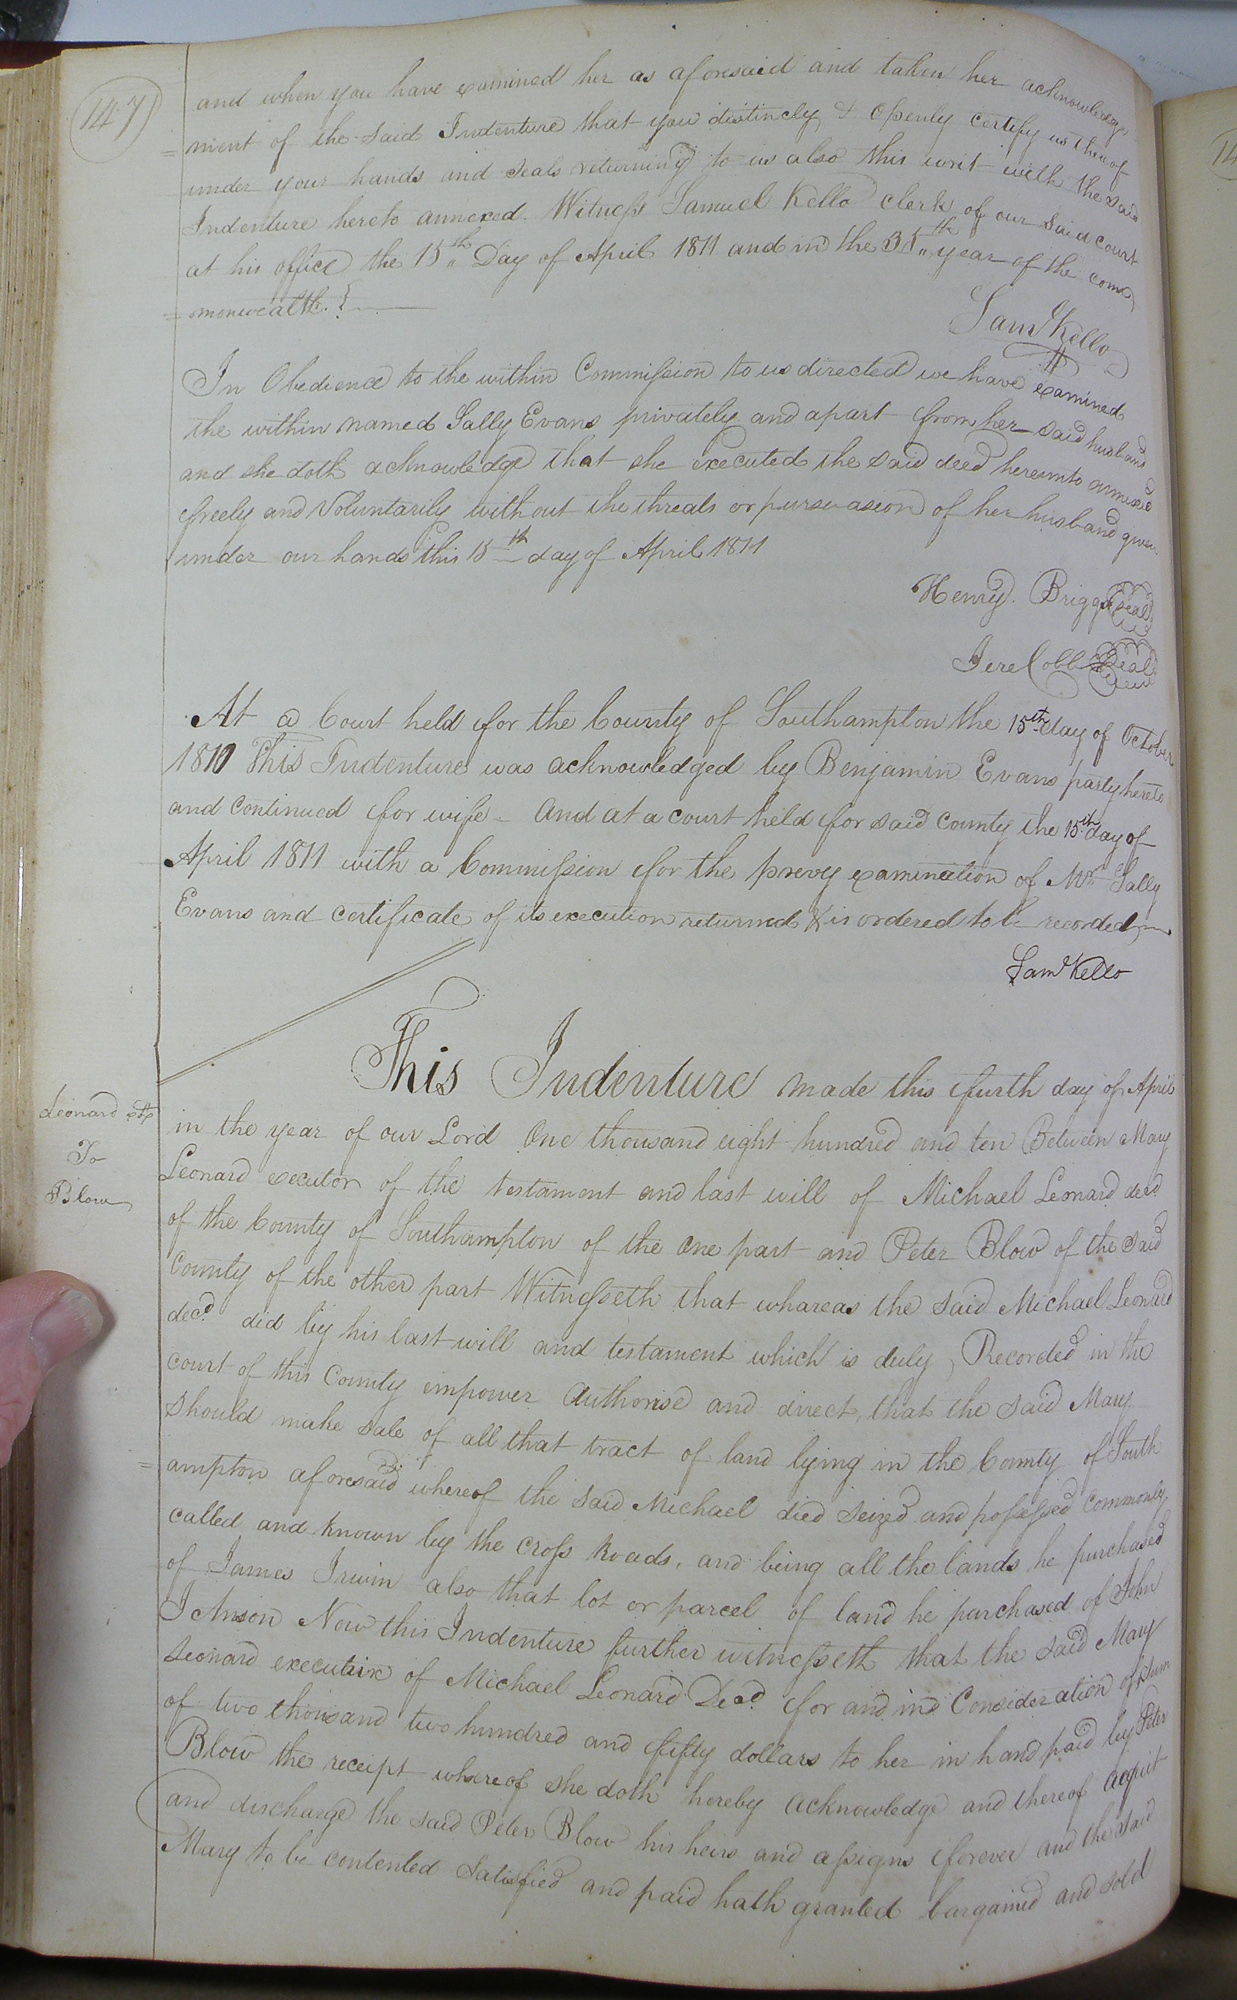 147
and when you have examined her as aforesaid and taken her acknowledge
= ment of the said Indenture that you distincly & Openly certify us thereof
under your hands and seals returning to us also this writ with the said
Indenture hereto annexed. Witness Samuel Kello clerk of our said court
at his office the 15th Day of April 1811 and in the 35th year of the com
= monwealth.
Saml Kello
In Obedience to the within Commission to us directed we have examined
the within named Sally Evans privately and apart from her said husband
and she doth acknowledge that she executed the said deed hereunto annexed
freely and Voluntarily without the threats or pursuasion of her husband given
under our hands this 15th day of April 1811
Henry Briggs Seal
Jere Cobb Seal
At a Court held for the County of Southampton the 15th day of October
1810 This Indenture was acknowledged by Benjamin Evans party hereto
and continued for wife - And at a court held for said county the 15th day of
April 1811 with a Commission for the prevy examination of Mrs Sally
Evans and certificate of its execution returned & is ordered to be recorded
Saml Kello
This Indenture made this furth day of April
Leonard ex
To
Blow
in the year of our Lord One thousand eight hundred and ten Between Mary
Leonard executor of the testament and last will of Michael Leonard decd
of the County of Southampton of the One part and Peter Blow of the said
County of the other part Witnesseth that whareas the said Michael Leonard
decd did by his last will and testament which is duly Recorded in the
court of this County empower Authorise and direct, that the said Mary
should make sale of all that tract of land lying in the County of South
= ampton aforesaid whereof the said Michael died seized and possessed Commonly
called and known by the cross Roads, and being all the lands he purchased
of James Irwin also that lot or parcel of land he purchased of John
Johnson Now this Indenture further witnesseth that the said Mary
Leonard executrix of Michael Leonard Decd for and in Consideration of sum
of two thousand two hundred and fifty dollars to her in hand paid by Peter
Blow the receipt whereof she doth hereby acknowledge and thereof acquit
and discharge the said Peter Blow his heirs and assigns forever and the said
Mary to be contented Satisfied and paid hath granted bargained and sold